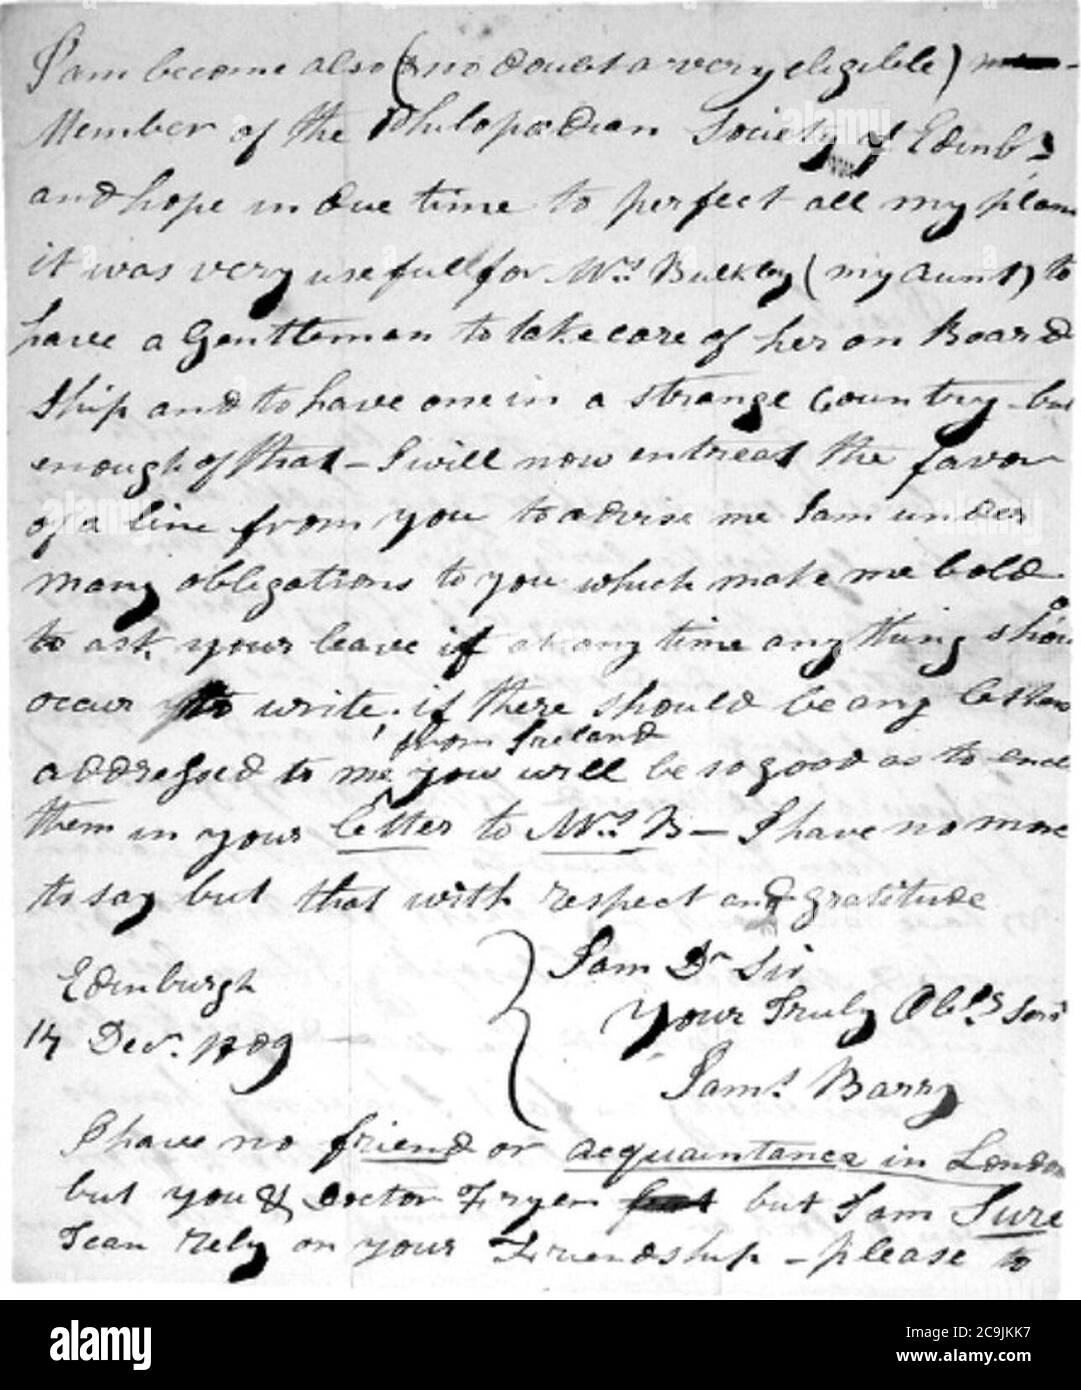 I am become also (& no doubt a very eligible)
Member of the Philopædian Society of Edinb.
and hope in due time to perfect all my plans
it was very usefull for Mrs Bulkley (my aunt) to
have a Gentleman to take care of her on Board
Ship and to have one in a strange Country - but
enough of that - I will now entreat the favor
of a line from you to advise me I am under
many obligations to you which make me bold
to ask your leave if at any time any thing shou
occur to write. if there should be any letters
from Ireland
addressed to me you will be so good as to encl
them in your letter to Mrs B - I have no more
to say but that with respect and gratitude
I am Dr Sir
Your Truly Obt. Servt
Jams. Barry
Edinburgh
14 Decr. 1809
I have no friend or acquaintance in London
but you & Doctor Fryer but I am Sure
I can rely on your Friendship - please to
alamy
alamy
alamy
alamy
Image ID: 2C9JKK7
www.alamy.com